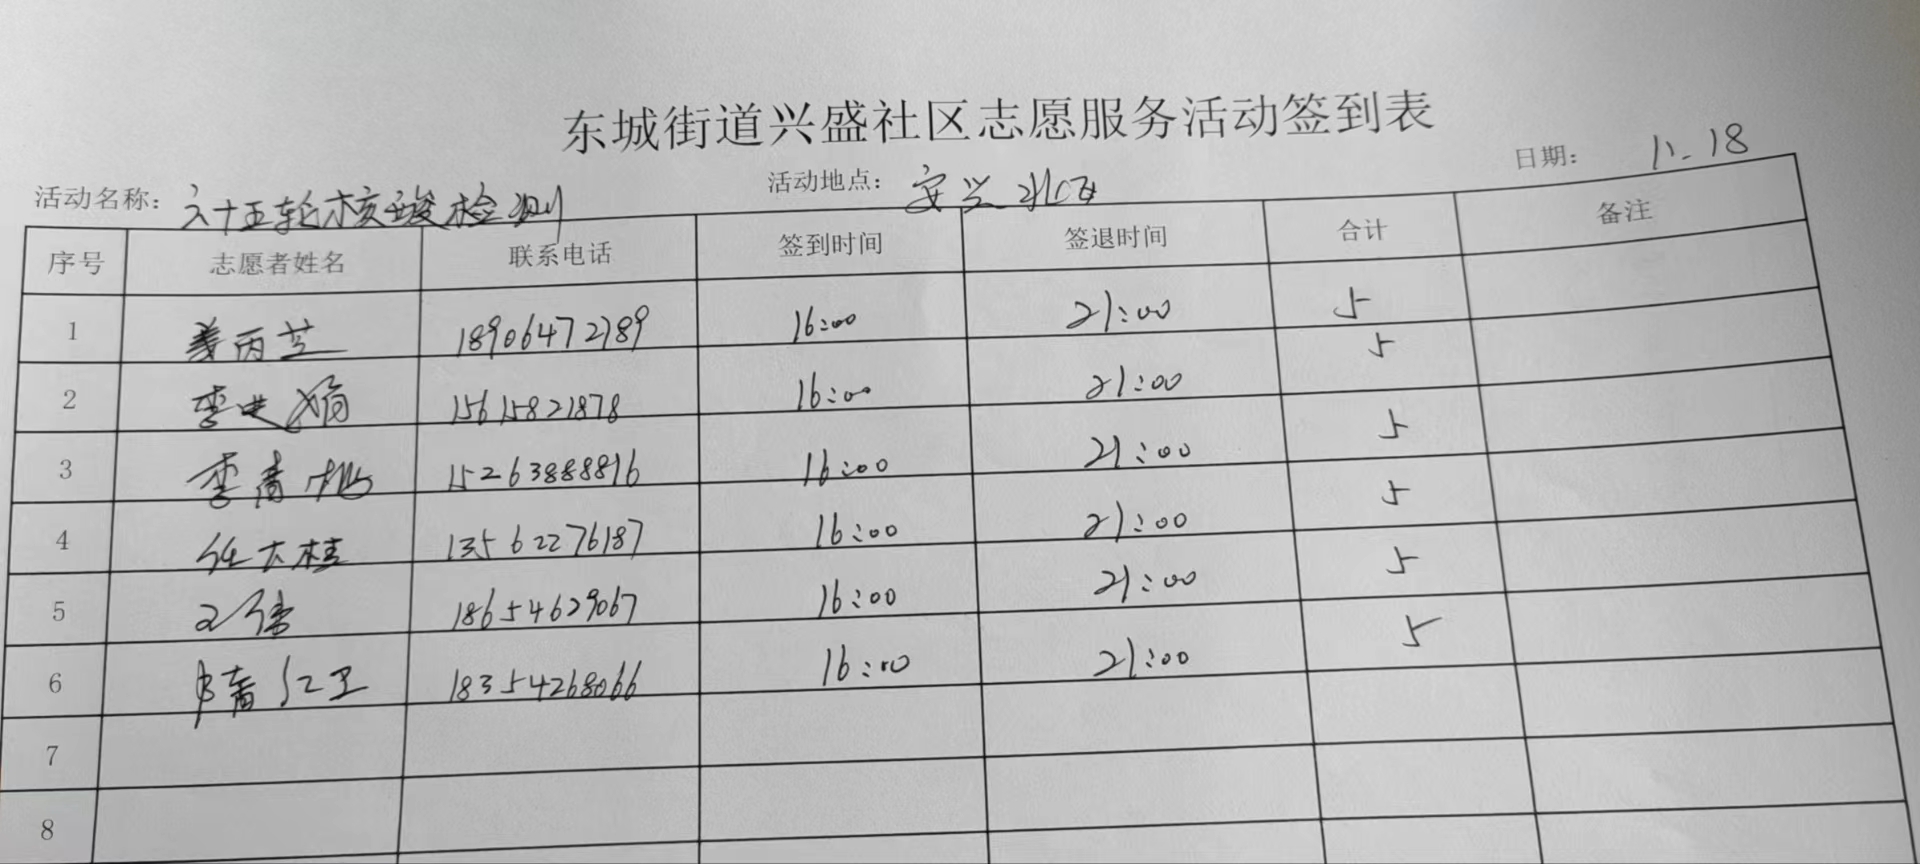 东城街道兴盛社区志愿服务活动签到表
活动名称: 六十五轮核酸检测 活动地点: 安兴北区 日期: 11.18
序号 志愿者姓名 联系电话 签到时间 签退时间 合计 备注
1 姜丙芝 18906472789 16:00 21:00 5
2 李 15615821878 16:00 21:00 5
3 李青梅 15263888816 16:00 21:00 5
4 任大桂 13562276187 16:00 21:00 5
5 18654629067 16:00 21:00 5
6 红卫 18354268066 16:00 21:00 5
7
8